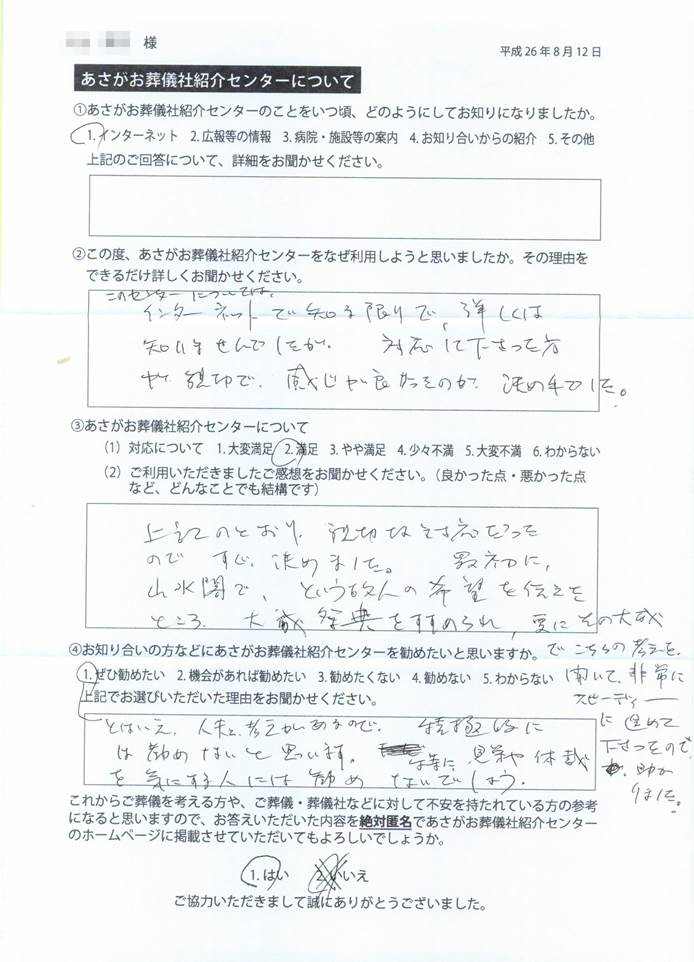 様
平成26年8月12日
あさがお葬儀社紹介センターについて
①あさがお葬儀社紹介センターのことをいつ頃、どのようにしてお知りになりましたか。
1. インターネット 2. 広報等の情報 3. 病院・施設等の案内 4. お知り合いからの紹介 5. その他
上記のご回答について、詳細をお聞かせください。
②この度、あさがお葬儀社紹介センターをなぜ利用しようと思いましたか。その理由を
できるだけ詳しくお聞かせください。
このセンターについては、
インターネットで知る限りで、詳しくは
知りませんでしたが、対応して下さった方
が親切で、感じが良かったのが、決め手でした。
③あさがお葬儀社紹介センターについて
(1) 対応について 1. 大変満足 2. 満足 3. やや満足 4. 少々不満 5. 大変不満 6. わからない
(2) ご利用いただきましたご感想をお聞かせください。(良かった点・悪かった点
など、どんなことでも結構です)
上記のとおり、親切な対応だった
ので すぐ、決めました。 最初に、
山水閣で、という故人の希望を伝えた
ところ、大蔵祭典をすすめられ、更にその大蔵
でこちらの考えを
聞いて、非常に
スピーディー
に進めて
下さったので
、助か
りました。
④お知り合いの方などにあさがお葬儀社紹介センターを勧めたいと思いますか。
1. ぜひ勧めたい 2. 機会があれば勧めたい 3. 勧めたくない 4. 勧めない 5. わからない
上記でお選びいただいた理由をお聞かせください。
とはいえ、人夫々考えがあるので、積極的に
は勧めないと思います。 特に、見栄や体裁
を気にする人には勧めないでしょう。
これからご葬儀を考える方や、ご葬儀・葬儀社などに対して不安を持たれている方の参考
になると思いますので、お答えいただいた内容を絶対匿名であさがお葬儀社紹介センター
のホームページに掲載させていただいてもよろしいでしょうか。
1. はい 2. いいえ
ご協力いただきまして誠にありがとうございました。